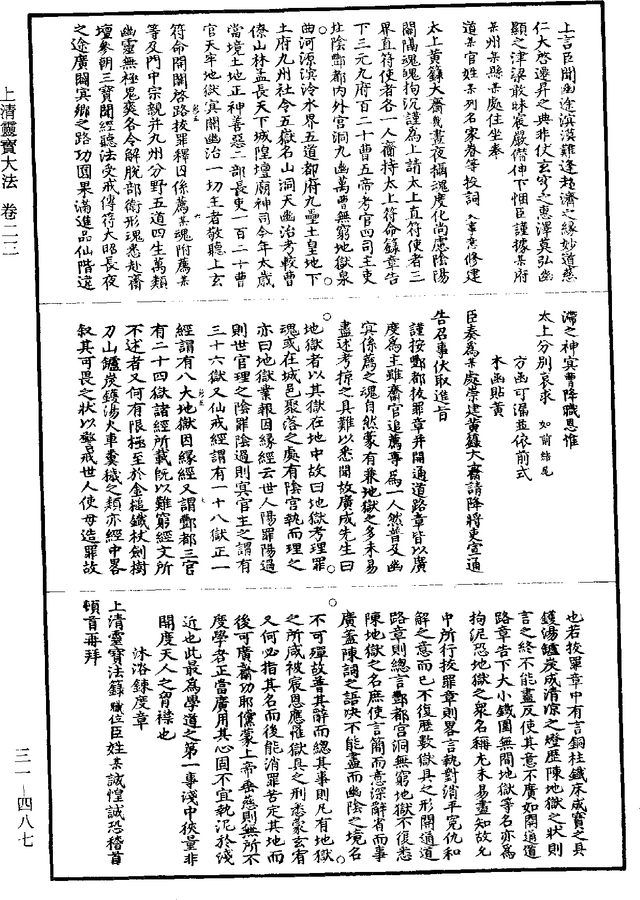 上清靈寶大法　卷二三
三一－四八七
上言臣聞幽途溟漠難逢超濟之緣妙道慈
仁大啓遷昇之典非仗玄穹之惠澤莫弘幽
顯之津梁敢昧宸嚴僭伸下悃臣謹據某府
某州某縣某處住坐奉
道某官姓某列名家眷等投詞入事意修建
太上黃籙大齋晝夜攝魂度化尚慮陰陽
間隔魂魄拘沉謹為上請太上直符使者三
界直符使者各一人齎持太上符命錄章告
下三元九府百二十曹五帝考官四司主吏
灶陰酆都內外宮洞九幽萬曹無窮地獄泉
曲河源溟泠水界五道都府九壘土皇地下
土府九州社令五嶽名山洞天幽治考較曹
僚山林孟長天下城隍壇廟神司今年太歲
當境土地正神善惡二部長吏一百二十曹
官天牢地獄冥關幽治一切主者敬聽上玄
符命開闡啓路拔罪釋因係薦某魂附薦某
等及門中宗親并九州分野五道四生萬類
幽靈無極鬼爽各令解脫部衛形魂悉赴齋
壇參朝三寶聞經聽法受戒傳符大昭長夜
之途廣闢冥鄉之路功圓果滿進品仙階違
滯之神冥曹降職恩惟
太上分別哀求　如前結尾
方函可漏並依前式
木函貼黃
臣奏為某處崇建黃籙大齋請降將吏宣通
告召事伏取進旨
謹按酆都拔罪章并開通道路章皆以廣
度為主雖齋官追薦專為一人然普及幽
冥係薦之魂自然蒙有兼地獄之多未易
盡述考掠之具難以悉聞故廣成先生曰
地獄者以其獄在地中故曰地獄考理罪
魂或在城邑聚落之處有陰宮執而理之
亦曰地獄業報因緣經云世人陽罪陽過
則世官理之陰罪陰過則冥官主之謂有
三十六獄又仙戒經謂有一十八獄正一
經謂有八大地獄因緣經又謂酆都三官
有二十四獄諸經所載既以難窮經文所
不述者又何有限極至於金槌鐵杖劍樹
刀山鑪炭鑊湯火車糞穢之類亦經中畧
叙其可畏之狀以警戒世人使毋造罪故
也若拔罪章中有言銅柱鐵床咸寶之具
鑊湯鑪炭成清凉之燈歷陳地獄之狀則
言之終不能盡反使其意不廣如開通道
路章告下大小鐵圍無間地獄等名亦為
拘泥恐地獄之衆名稱尤未易盡知故允
中所行拔罪章則畧言執對消平冤仇和
解之意而已不復歷數獄具之形開通道
路章則總言酆都宮洞無窮地獄不復悉
陳地獄之名庶使言簡而意深辭省而事
廣蓋陳詞之語決不能盡而幽陰之境名
不可殫故普其辭而總其事則凡有地獄
之所咸被宸恩應罹獄具之刑悉蒙玄宥
又何必指其名而後能消罪苦定其地而
後可廣齋功耶儻蒙上帝垂慈則無所不
度學者正當廣用其心固不宜執泥於淺
近也此最為學道之第一事淺中狹量非
開度天人之胷襟也
沐浴鍊度章
上清靈寶法籙職位臣姓某誠惶誠恐稽首
頓首再拜